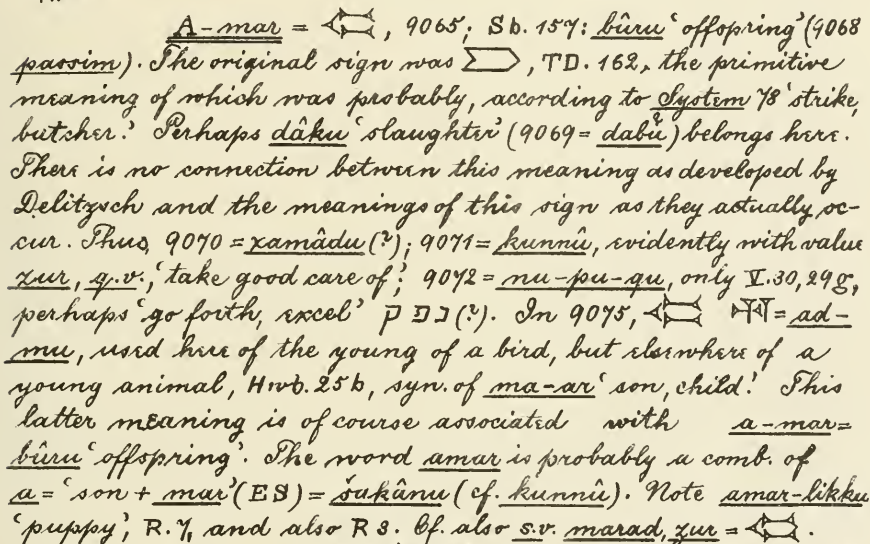 A-mar = 𒀫, 9065; Sb. 157: bûru ‘offspring’ (9068
passim). The original sign was , TD. 162, the primitive
meaning of which was probably, according to System 78 ‘strike,
butcher.’ Perhaps dâku ‘slaughter’ (9069 = dabû?) belongs here.
There is no connection between this meaning as developed by
Delitzsch and the meanings of this sign as they actually oc-
cur. Thus, 9070 = xamâdu (?); 9071 = kunnû, evidently with value
zur, q.v., ‘take good care of’; 9072 = nu-pu-qu, only V. 30, 29g,
perhaps ‘go forth, excel’ נפק (?). In 9075, 𒀫 𒄷 = ad-
mu, used here of the young of a bird, but elsewhere of a
young animal, Hwb. 25b, syn. of ma-ar ‘son, child.’ This
latter meaning is of course associated with a-mar =
bûru ‘offspring’. The word amar is probably a comb. of
a = ‘son + mar’ (ES) = šakânu (cf. kunnû). Note amar-likku
‘puppy’, R. 7, and also R 3. Cf. also s.v. marad, zur = 𒀫.